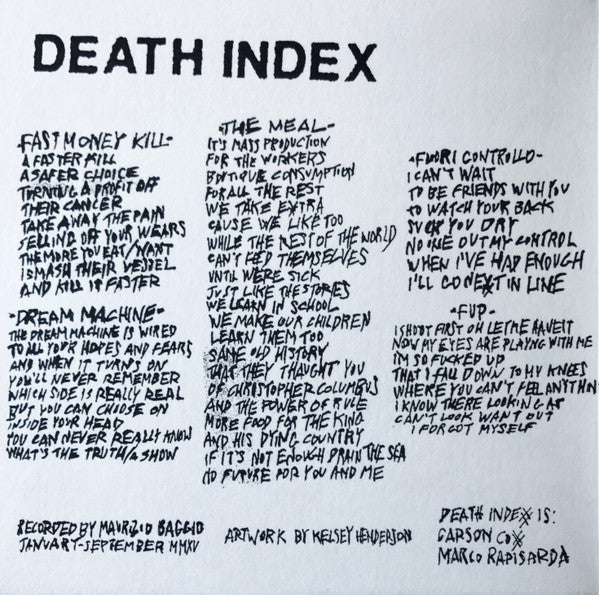 DEATH INDEX
-FAST MONEY KILL-
A FASTER KILL
A SAFER CHOICE
TURNING A PROFIT OFF
THEIR CANCER
TAKE AWAY THE PAIN
SELLING OFF YOUR WEARS
THE MORE YOU EAT/WANT
I SMASH THEIR VESSEL
AND KILL IT FASTER
-DREAM MACHINE-
THE DREAM MACHINE IS WIRED
TO ALL YOUR HOPES AND FEARS
AND WHEN IT TURNS ON
YOU'LL NEVER REMEMBER
WHICH SIDE IS REALLY REAL
BUT YOU CAN CHOOSE ON
INSIDE YOUR HEAD
YOU CAN NEVER REALLY KNOW
WHAT'S THE TRUTH/A SHOW
-THE MEAL-
IT'S MASS PRODUCTION
FOR THE WORKERS
BOUTIQUE CONSUMPTION
FOR ALL THE REST
WE TAKE EXTRA
CAUSE WE LIKE TOO
WHILE THE REST OF THE WORLD
CAN'T FEED THEMSELVES
UNTIL WERE SICK
JUST LIKE THE STORIES
WE LEARN IN SCHOOL
WE MAKE OUR CHILDREN
LEARN THEM TOO
SAME OLD HISTORY
THAT THEY THAUGHT YOU
OF CHRISTOPHER COLUMBUS
AND THE POWER OF RULE
MORE FOOD FOR THE KING
AND HIS DYING COUNTRY
IF IT'S NOT ENOUGH DRAIN THE SEA
NO FUTURE FOR YOU AND ME
-FUORI CONTROLLO-
I CAN'T WAIT
TO BE FRIENDS WITH YOU
TO WATCH YOUR BACK
SUCK YOU DRY
NO ONE OUT MY CONTROL
WHEN I'VE HAD ENOUGH
I'LL GO NEXT IN LINE
-FUP-
I SHOOT FIRST OH LET ME HAVE IT
NOW MY EYES ARE PLAYNG WITH ME
I'M SO FUCKED UP
THAT I FALL DOWN TO MY KNEES
WHERE YOU CAN'T FEEL ANYTHIN
I KNOW THERE LOOKING AT
CAN'T LOOK WANT OUT
I FORGOT MYSELF
RECORDED BY MAURIZIO BAGGIO
JANUARY-SEPTEMBER MMXV
ARTWORK BY KELSEY HENDERSON
DEATH INDEX IS:
CARSON COX
MARCO RAPISARDA